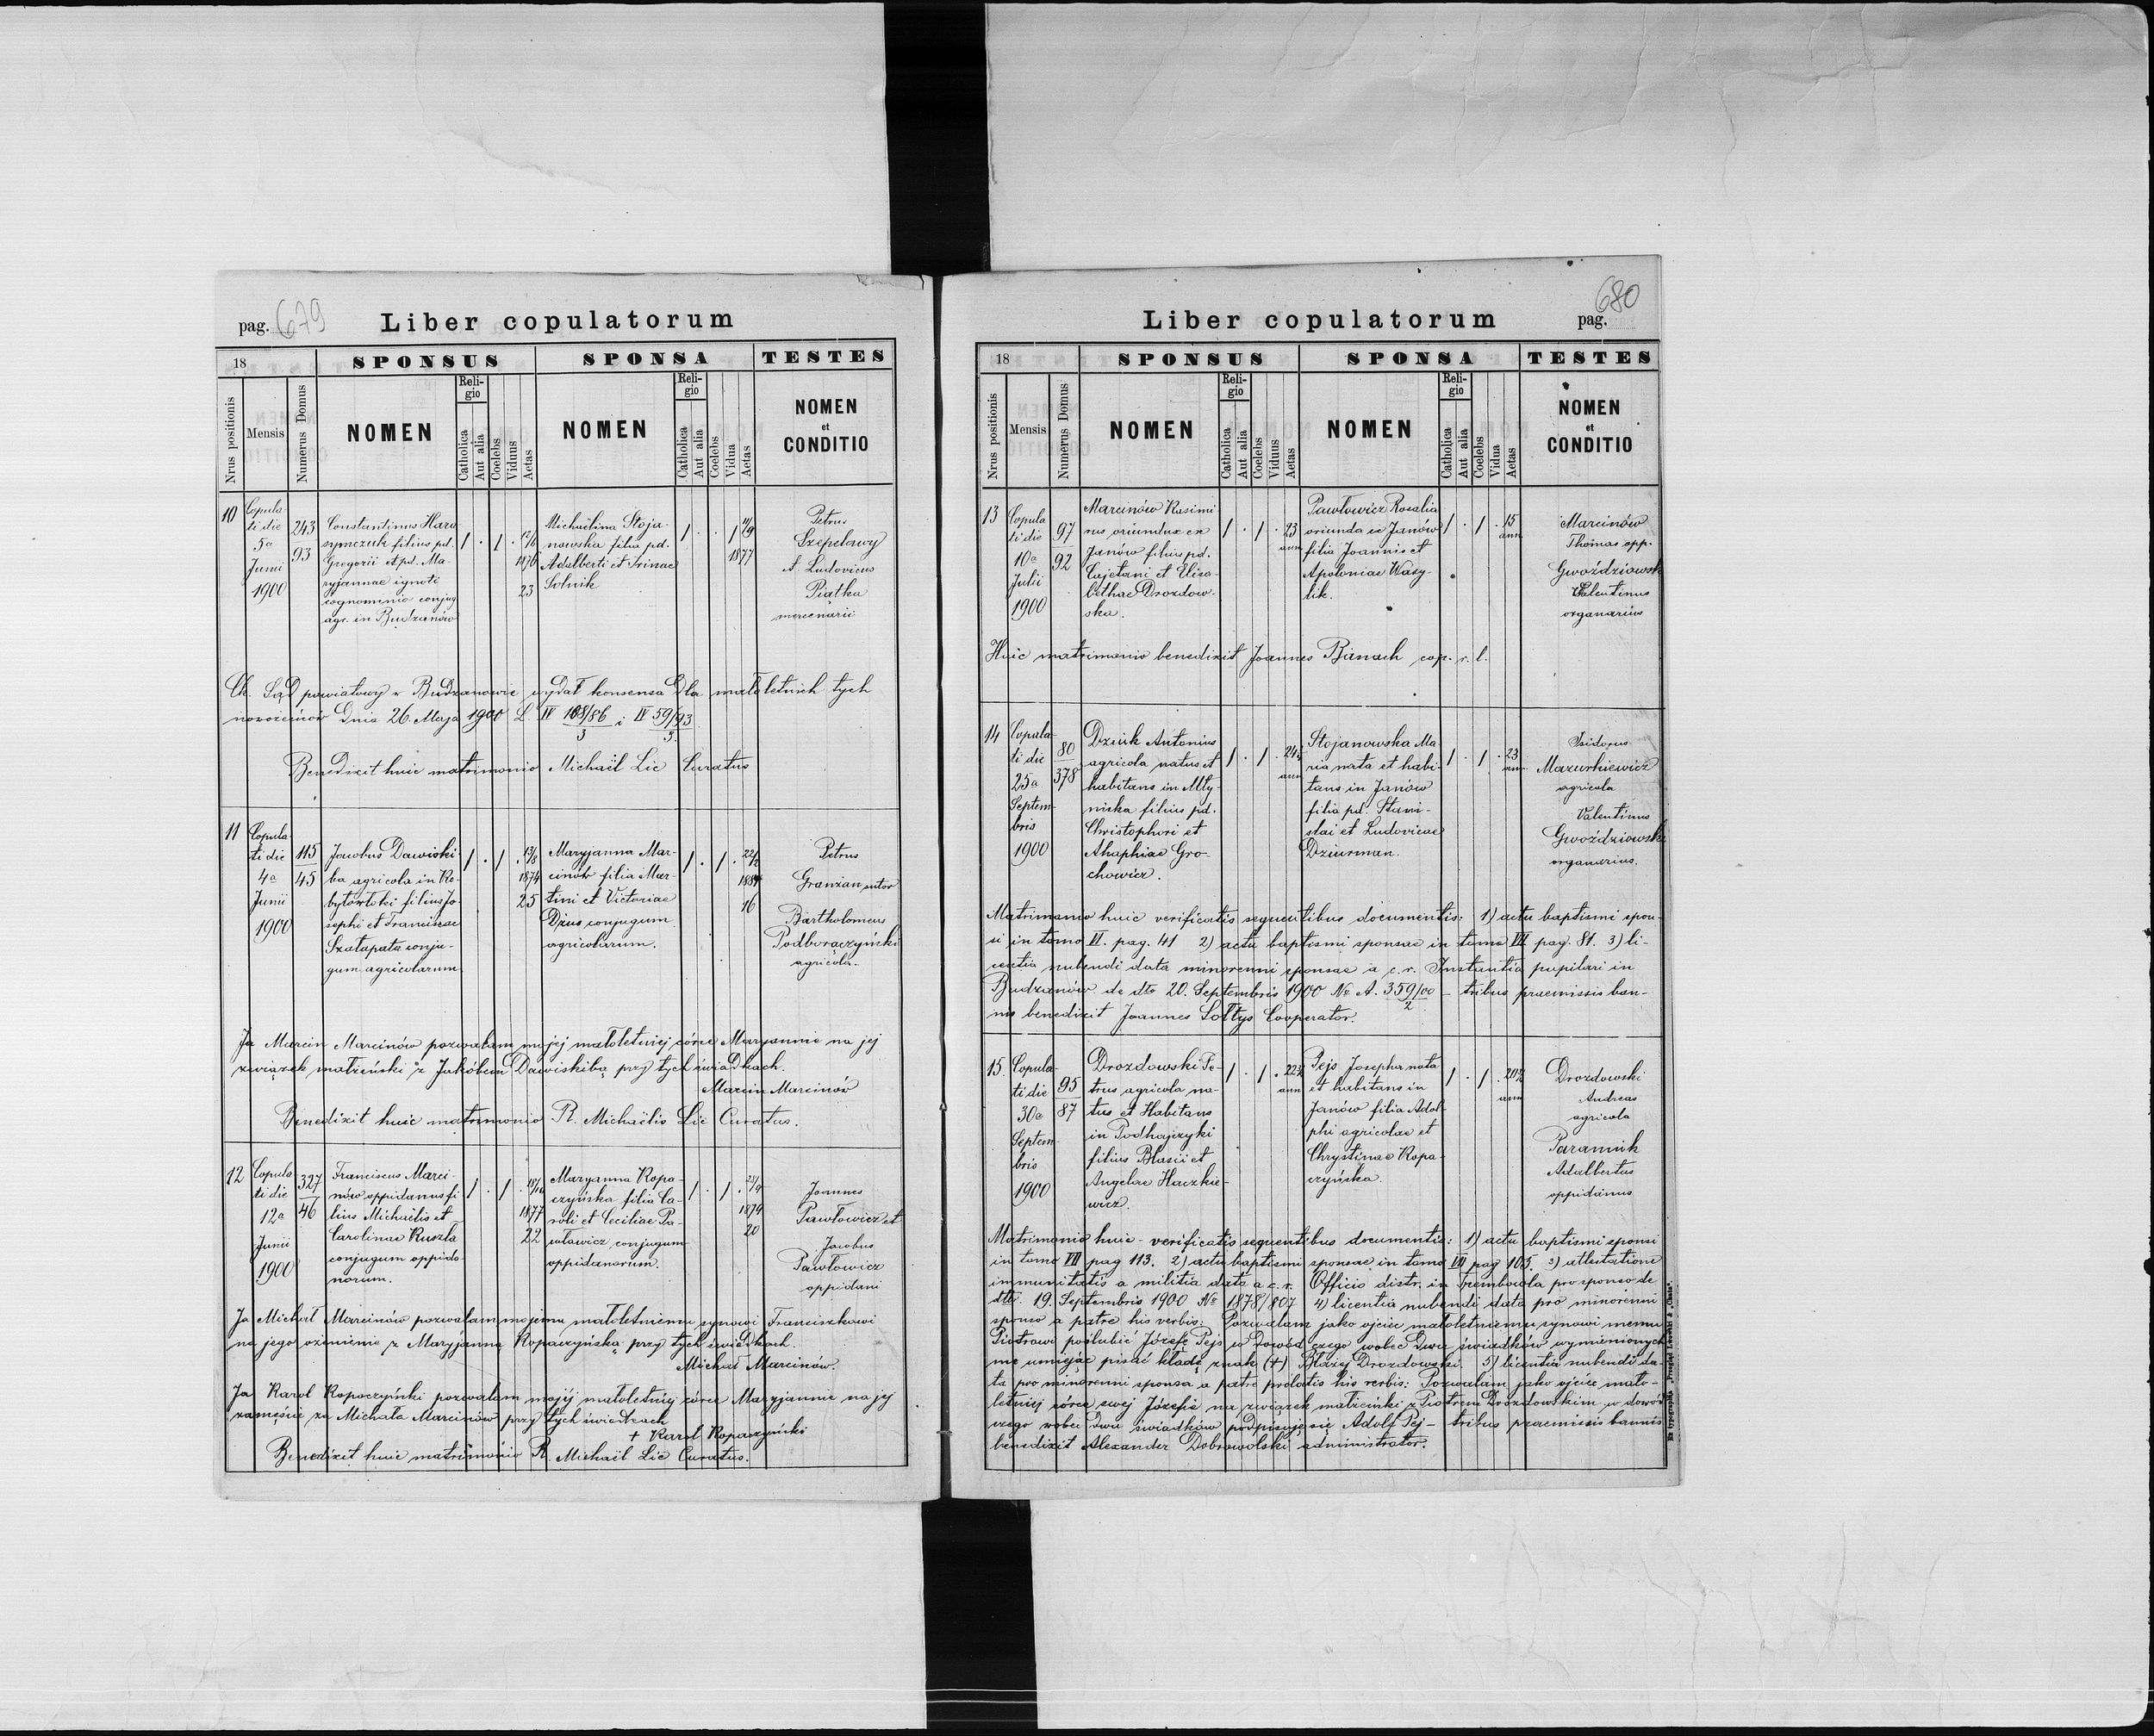 pag. 679
Liber copulatorum
18 SPONSUS SPONSA TESTES
Nrus positionis Mensis Numerus Domus NOMEN Religio Catholica Aut alia Coelebs Viduus Aetas NOMEN Religio Catholica Aut alia Coelebs Vidua Aetas NOMEN et CONDITIO
10
Copula-
ti die
5a
Junii
1900
243
93
Constantinus Hary-
symczuk filius pd.
Gregorii et pd. Ma-
ryjannae ignoti
cognominis conjug
agr. in Budzanów
1 . 1 . 12/6
1876
23
Michaelina Stoja-
nowska filia pd.
Adalberti et Irinae
Solnik
1 . . 1
1877
Petrus
Szepelowy
et Ludovicus
Piątka
mercenarii
Ck. Sąd powiatowy w Budzanowie wydał konsensa dla małoletnich tych
nowożeńców dnia 26. Maja 1900 L IV 108/86 i IV 59/93
3 5.
Benedixit huic matrimonio Michaël Lic Curatus
11
Copula-
ti die
4a
Junii
1900
115
45
Jacobus Dawiski-
ba agricola in Ko-
bytówłoki filius Jo-
sephi et Franciscae
Szatapata conju-
gum agricolarum
1 . 1 . 13/8
1874
25
Maryjanna Mar-
cinów filia Mar-
tini et Victoriae
Dżus conjugum
agricolarum.
1 . 1 . 22/2
1884
16
Petrus
Granżan sutor
Bartholomeus
Podboraczyński
agricola.
Ja Marcin Marcinów pozwalam mojej małoletniej córce Maryannie na jej
związek małżeński z Jakóbem Dawiskibą przy tych świadkach.
Marcin Marcinów
Benedixit huic matrimonio R. Michaëlis Lic Curatus.
12
Copula
ti die
12a
Junii
1900
327
46
Franciscus Marci-
nów oppidanus fi
lius Michaëlis et
Carolinae Kuszla
conjugum oppida-
norum.
1 . 1 . 18/10
1877
22
Maryanna Kopa-
czyńska filia Ca-
roli et Ceciliae Pa-
włowicz conjugum
oppidanorum.
1 . 1 . 23/9
1879
20
Joannes
Pawłowicz et
Jacobus
Pawłowicz
oppidani
Ja Michał Marcinów pozwalam mojemu małoletniemu synowi Franciszkowi
na jego ożenienie z Maryjanną Kopaczyńską przy tych świadkach.
Michał Marcinów.
Ja Karol Kopaczyński pozwalam mojéj małoletniéj córce Maryjannie na jej
zamęście za Michała Marcinów przy tych świadkach
+ Karol Kopaczyński
Benedixit huic matrimonio R. Michaël Lic Curatus.
680
Liber copulatorum pag.
18 SPONSUS SPONSA TESTES
Nrus positionis Mensis Numerus Domus NOMEN Religio Catholica Aut alia Coelebs Viduus Aetas NOMEN Religio Catholica Aut alia Coelebs Vidua Aetas NOMEN et CONDITIO
13
Copula
ti die
10a
Julii
1900
97
92
Marcinów Kasimi-
rus oriundus ex
Janów filius pd.
Cajetani et Elisa-
bethae Drozdow-
ska.
1 . 1 . 23
ann
Pawłowicz Rosalia
oriunda ex Janów
filia Joannis et
Apoloniae Wasy-
lik.
1 . 1 . 15
ann.
Marcinów
Thomas opp.
Gwoździowski
Valentinus
organarius
Huic matrimonio benedixit Joannes Banach cop. r. l.
14
Copula-
ti die
25a
Septem-
bris
1900
80
378
Dziuk Antonius
agricola natus et
habitans in Mły-
niska filius pd.
Christophori et
Ahaphiae Gro-
chowicz.
1 . 1 . 24
ann
Stojanowska Ma-
ria nata et habi-
tans in Janów
filia pd. Stani-
slai et Ludovicae
Dziurman.
1 . 1 . 23
ann.
Isidorus
Mazurkiewicz
agricola
Valentinus
Gwoździowski
organarius.
Matrimonio huic verificatis sequentibus documentis: 1) actu baptismi spon-
si in tomo II. pag. 41 2) actu baptismi sponsae in tomo VII pag. 81. 3) li-
centia nubendi data minorenni sponsae a c. r. Instantia pupilari in
Budzanów de dto 20. Septembris 1900 No A. 359/00 - tribus praemissis ban-
2
nis benedixit Joannes Sołtys Cooperator.
15.
Copula-
ti die
30a
Septem-
bris
1900
95
87
Drozdowski Pe-
trus agricola na-
tus et habitans
in Podhajczyki
filius Blasii et
Angelae Haczkie-
wicz.
1 . 1 . 22
ann
Pejs Josepha nata
et habitans in
Janów filia Adol-
phi agricolae et
Chrystinae Kopa-
czyńska.
1 . 1 . 20
ann
Drozdowski
Andreas
agricola
Paraniuk
Adalbertus
oppidanus
Matrimonio huic - verificatis sequentibus documentis: 1) actu baptismi sponsi
in tomo VII pag 113. 2) actu baptismi sponsae in tomo VII pag 105. 3) attestatione
immunitatis a militia data a c. r. Officio distr. in Trembowla pro sponso de
dto. 19. Septembris 1900 No 1878/807 4) licentia nubendi data pro minorenni
sponso a patre his verbis: Pozwalam jako ojciec małoletniemu synowi memu
Piotrowi poślubić Józefę Pejs w dowód czego wobec dwu świadków wymienionych
nie umiejąc pisać kładę znak (+) Błażej Drozdowski. 5) licentia nubendi da-
ta pro minorenni sponsa a patre prolatis his verbis: Pozwalam jako ojciec mało-
letniej córce swej Józefie na związek małżeński z Piotrem Drozdowskim w dowód
czego wobec dwu świadków podpisuję się Adolf Pej - tribus praemissis bannis
benedixit Alexander Dobrowolski administrator.